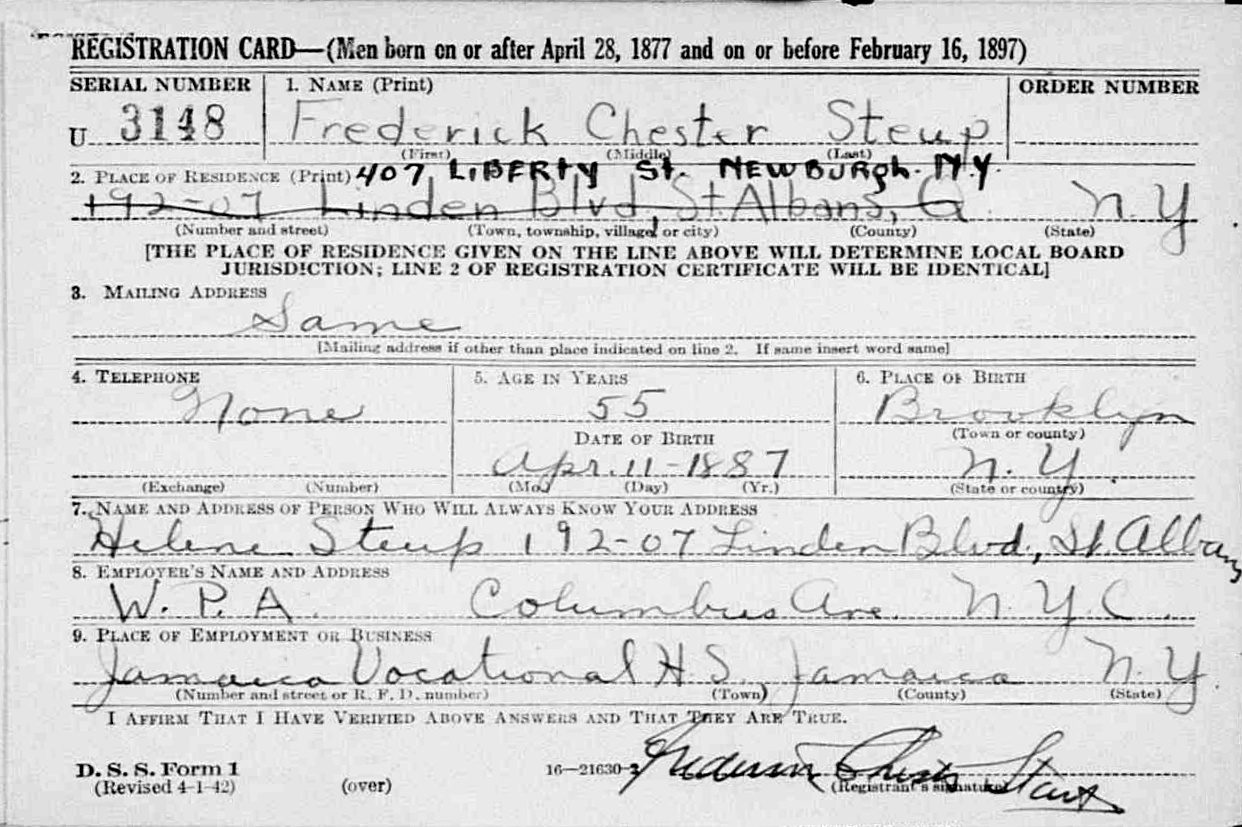 REGISTRATION CARD—(Men born on or after April 28, 1877 and on or before February 16, 1897)
SERIAL NUMBER 1. NAME (Print) ORDER NUMBER
U 3148 Frederick Chester Steup
(First) (Middle) (Last)
2. PLACE OF RESIDENCE (Print) 407 LIBERTY St. NEWBURGH. N.Y.
192-07 Linden Blvd, St. Albans, Q. N.Y
(Number and street) (Town, township, village, or city) (County) (State)
[THE PLACE OF RESIDENCE GIVEN ON THE LINE ABOVE WILL DETERMINE LOCAL BOARD
JURISDICTION; LINE 2 OF REGISTRATION CERTIFICATE WILL BE IDENTICAL]
3. MAILING ADDRESS
Same
[Mailing address if other than place indicated on line 2. If same insert word same]
4. TELEPHONE 5. AGE IN YEARS 6. PLACE OF BIRTH
None 55 Brooklyn
DATE OF BIRTH (Town or county)
Apr. 11-1887 N.Y.
(Exchange) (Number) (Mo.) (Day) (Yr.) (State or country)
7. NAME AND ADDRESS OF PERSON WHO WILL ALWAYS KNOW YOUR ADDRESS
Helene Steup 192-07 Linden Blvd., St. Albans
8. EMPLOYER'S NAME AND ADDRESS
W. P. A. Columbus Ave. N.Y.C.
9. PLACE OF EMPLOYMENT OR BUSINESS
Jamaica Vocational H.S., Jamaica N.Y.
(Number and street or R. F. D. number) (Town) (County) (State)
I AFFIRM THAT I HAVE VERIFIED ABOVE ANSWERS AND THAT THEY ARE TRUE.
D. S. S. Form 1 16—21630-2 Frederick Chester Steup
(Revised 4-1-42) (over) (Registrant's signature)